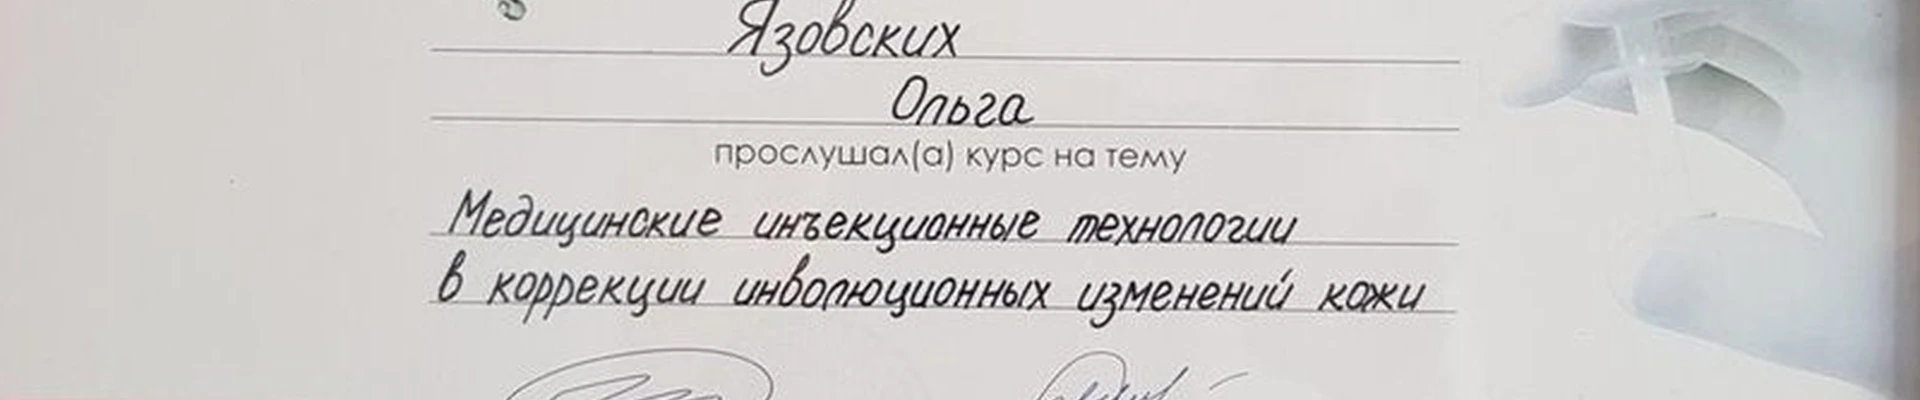 Язовских
Ольга
прослушал(а) курс на тему
Медицинские инъекционные технологии
в коррекции инволюционных изменений кожи